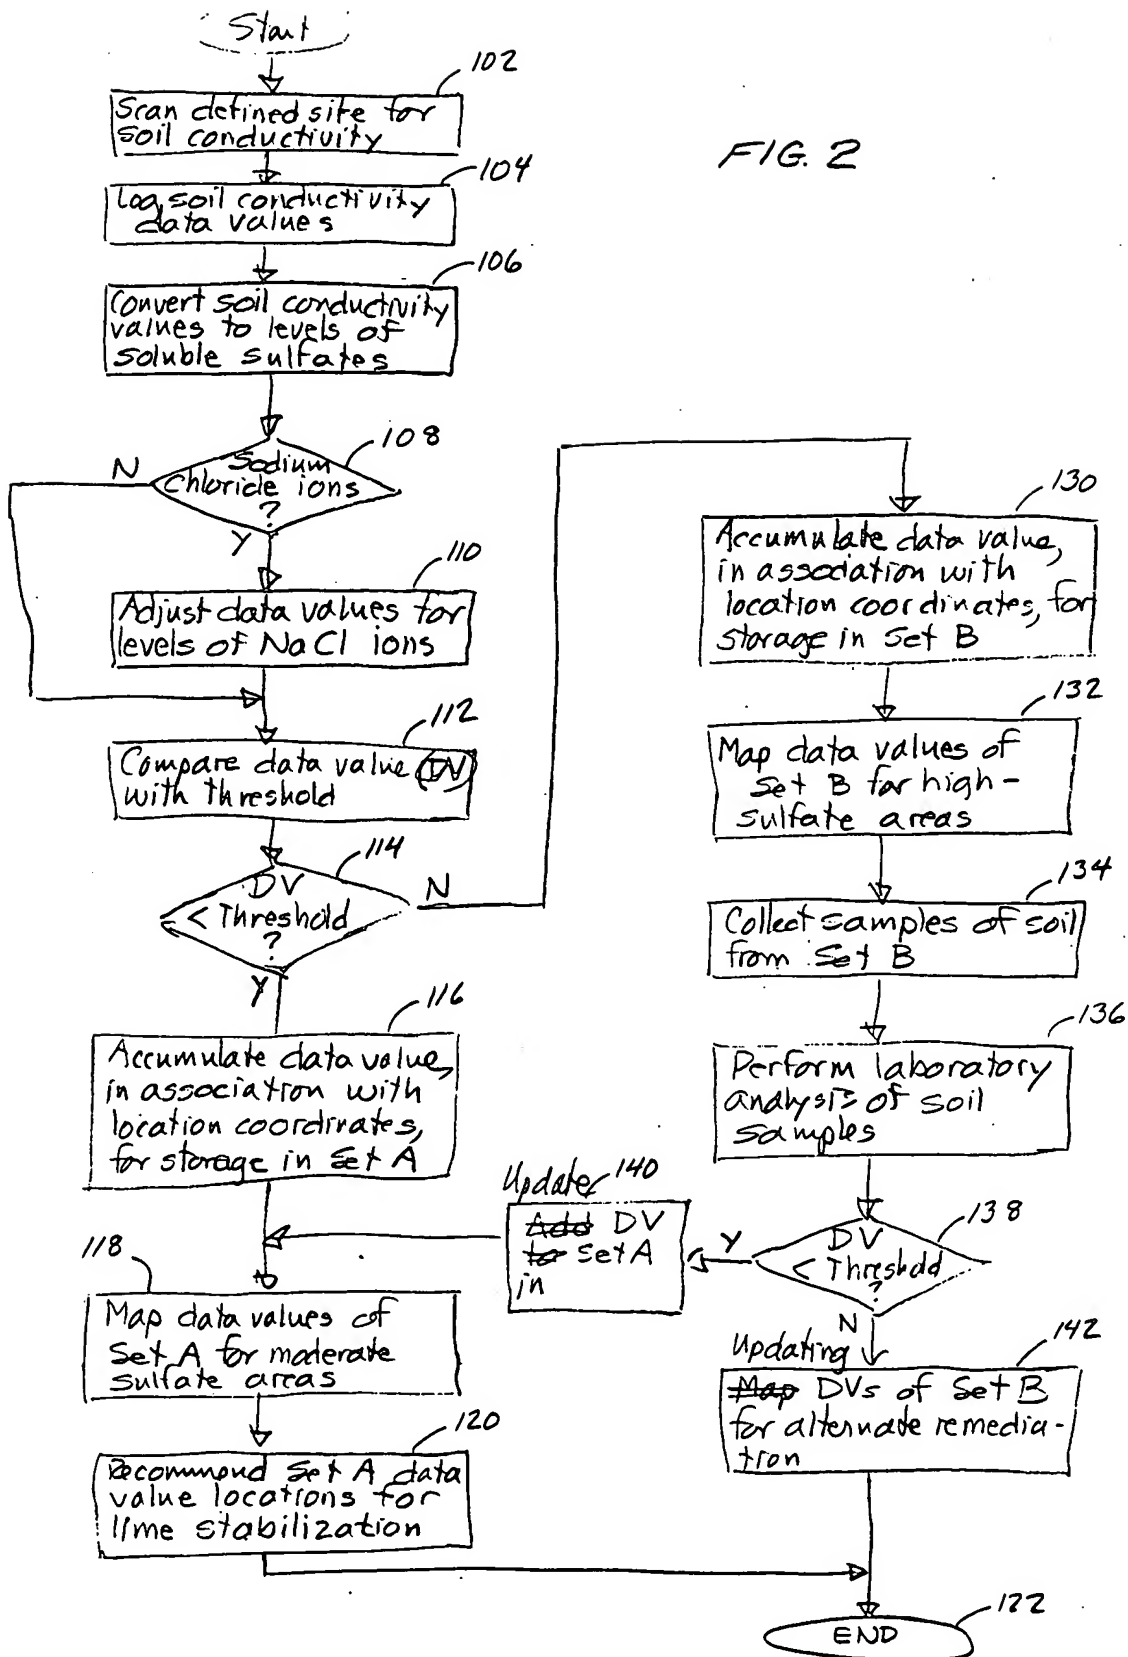 Start
102
Scan defined site for
soil conductivity
FIG. 2
104
Log soil conductivity
data values
106
Convert soil conductivity
values to levels of
soluble sulfates
108
N
Sodium
chloride ions
?
Y
110
Adjust data values for
levels of NaCl ions
112
Compare data value (DV)
with threshold
114
DV
< Threshold
?
N
Y
116
Accumulate data value,
in association with
location coordinates,
for storage in Set A
118
Map data values of
Set A for moderate
sulfate areas
120
Recommend Set A data
value locations for
lime stabilization
130
Accumulate data value,
in association with
location coordinates, for
storage in Set B
132
Map data values of
Set B for high-
sulfate areas
134
Collect samples of soil
from Set B
136
Perform laboratory
analysis of soil
samples
138
DV
< Threshold
?
Y
N
Update 140
Add DV
to Set A
in
Updating
142
Map DVs of Set B
for alternate remedia-
tion
122
END